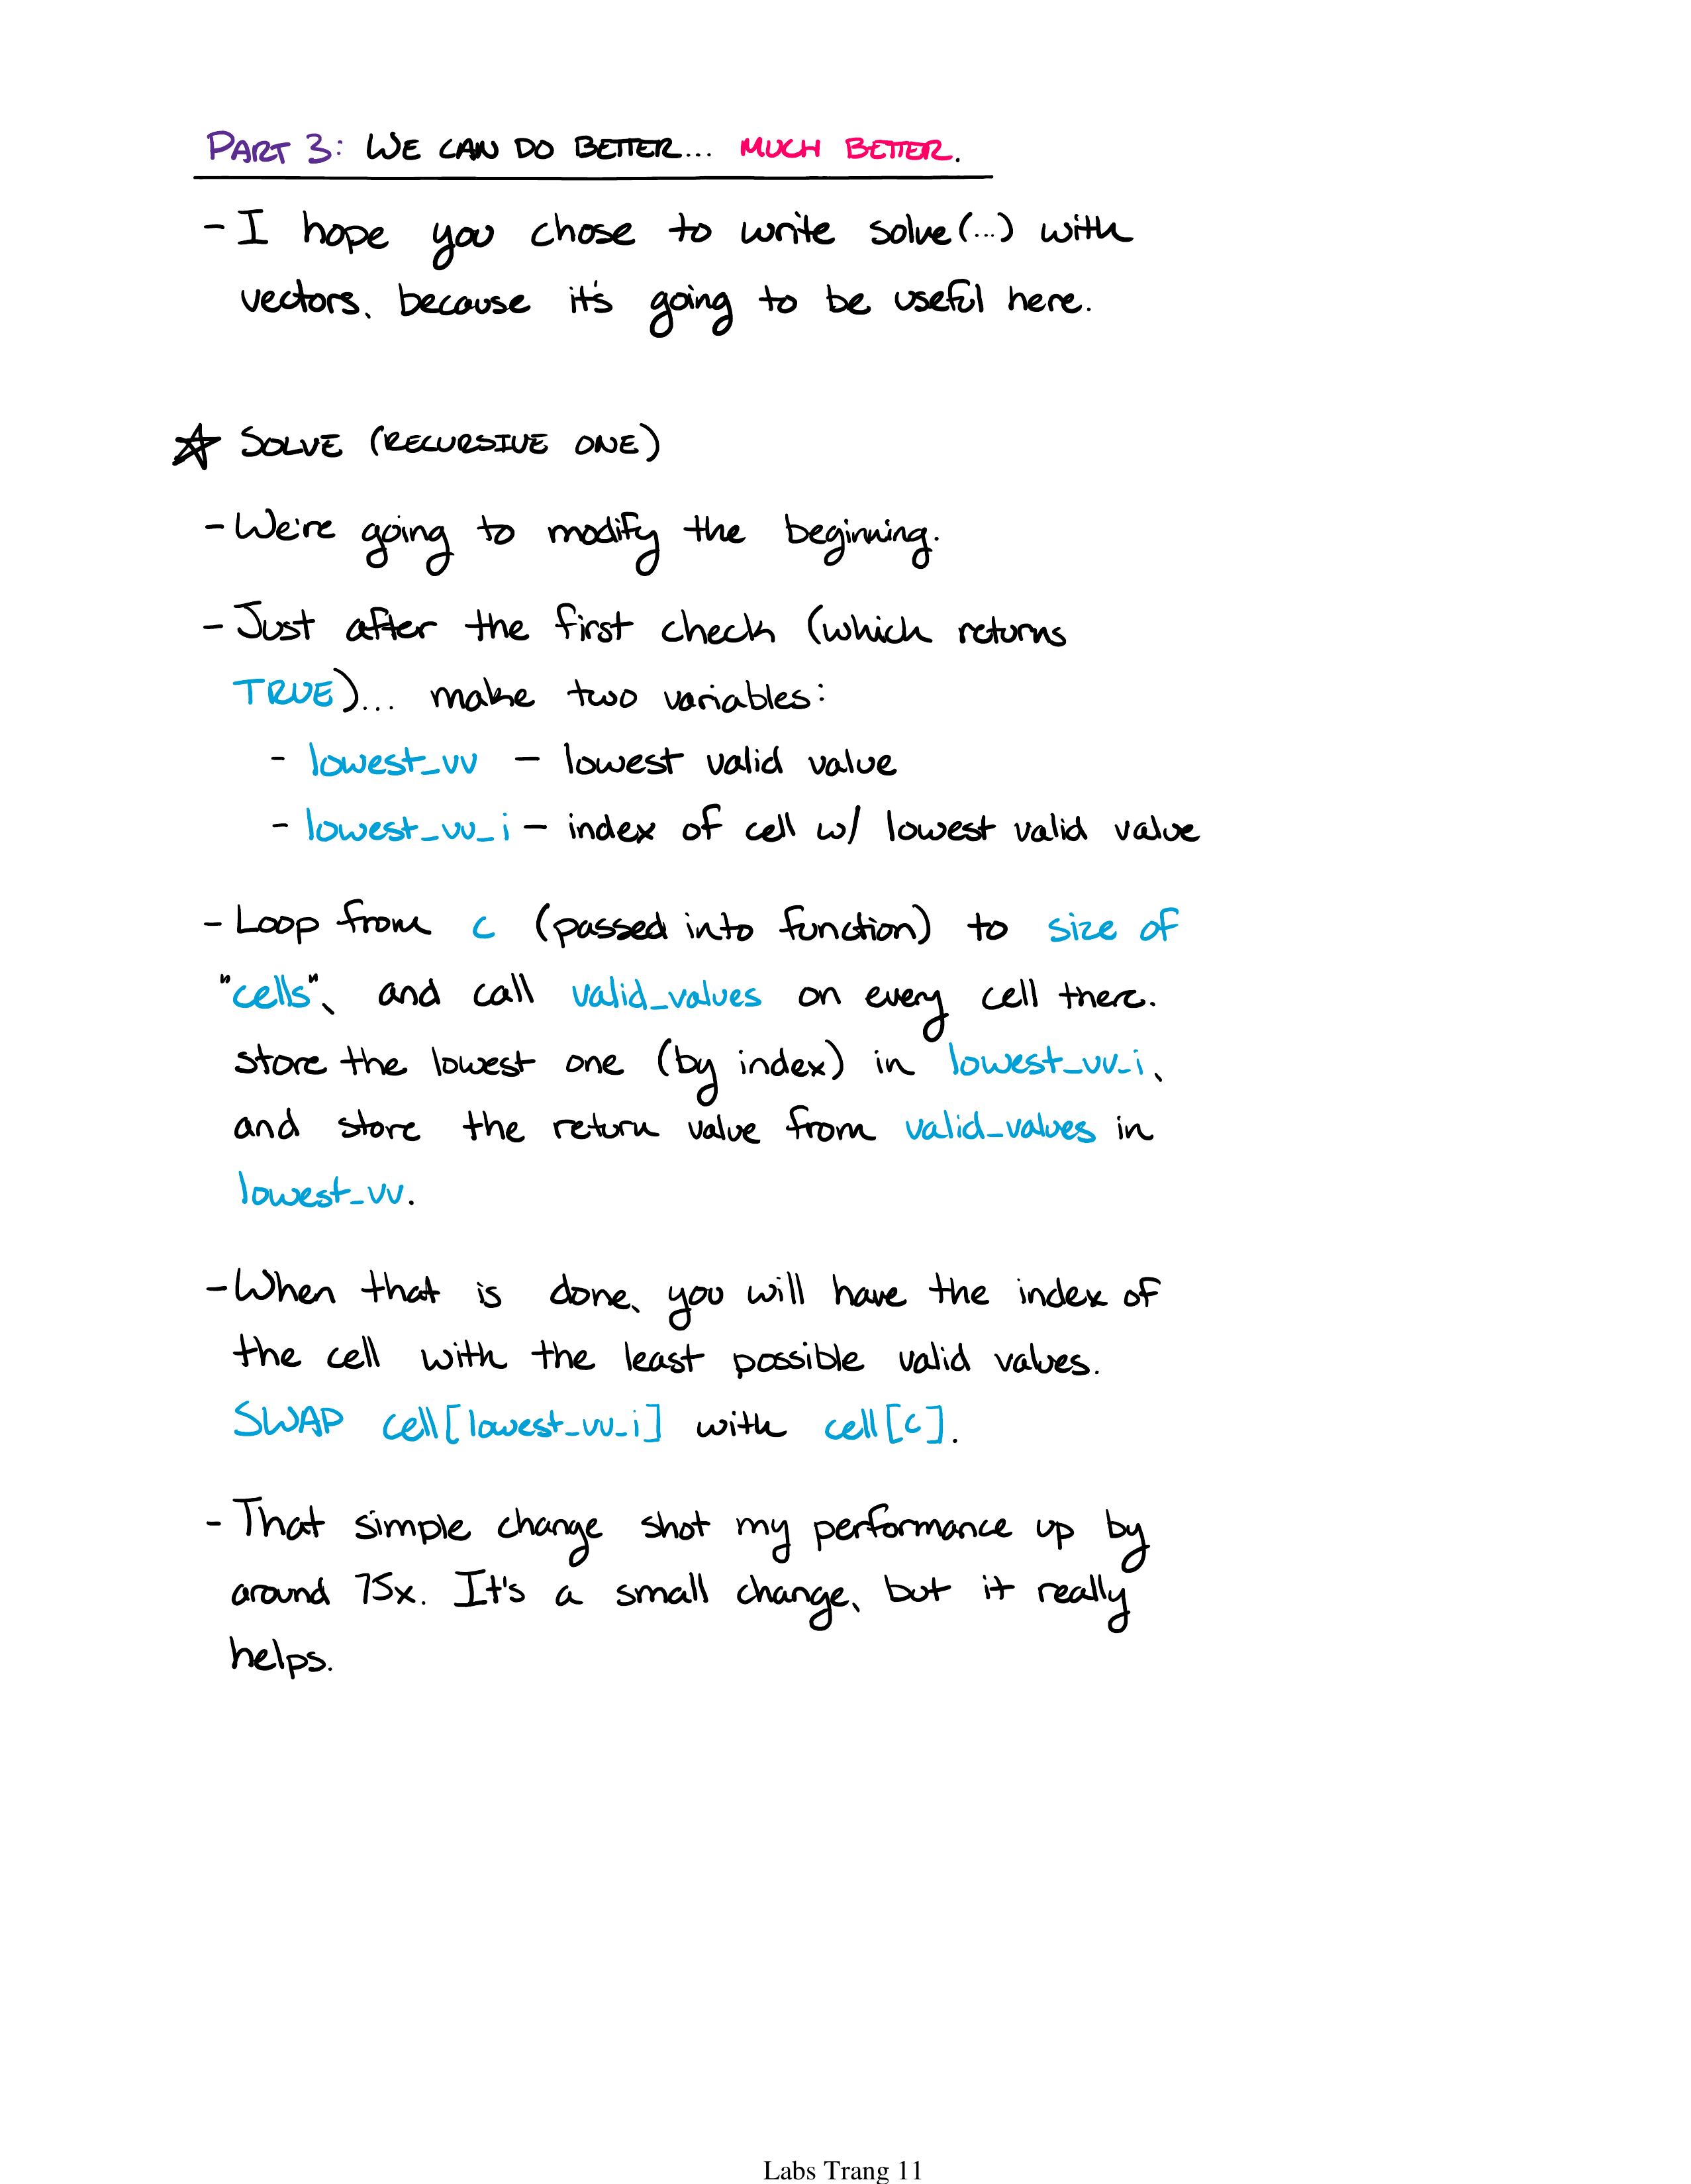 PART 3: WE CAN DO BETTER... MUCH BETTER.
- I hope you chose to write solve(...) with
vectors, because it's going to be useful here.
☆ SOLVE (RECURSIVE ONE)
- We're going to modify the beginning.
- Just after the first check (which returns
TRUE)... make two variables:
- lowest_vv — lowest valid value
- lowest_vv_i — index of cell w/ lowest valid value
- Loop from c (passed into function) to size of
"cells", and call valid_values on every cell there.
store the lowest one (by index) in lowest_vv_i,
and store the return value from valid_values in
lowest_vv.
- When that is done, you will have the index of
the cell with the least possible valid values.
SWAP cell[lowest_vv_i] with cell[c].
- That simple change shot my performance up by
around 75x. It's a small change, but it really
helps.
Labs Trang 11